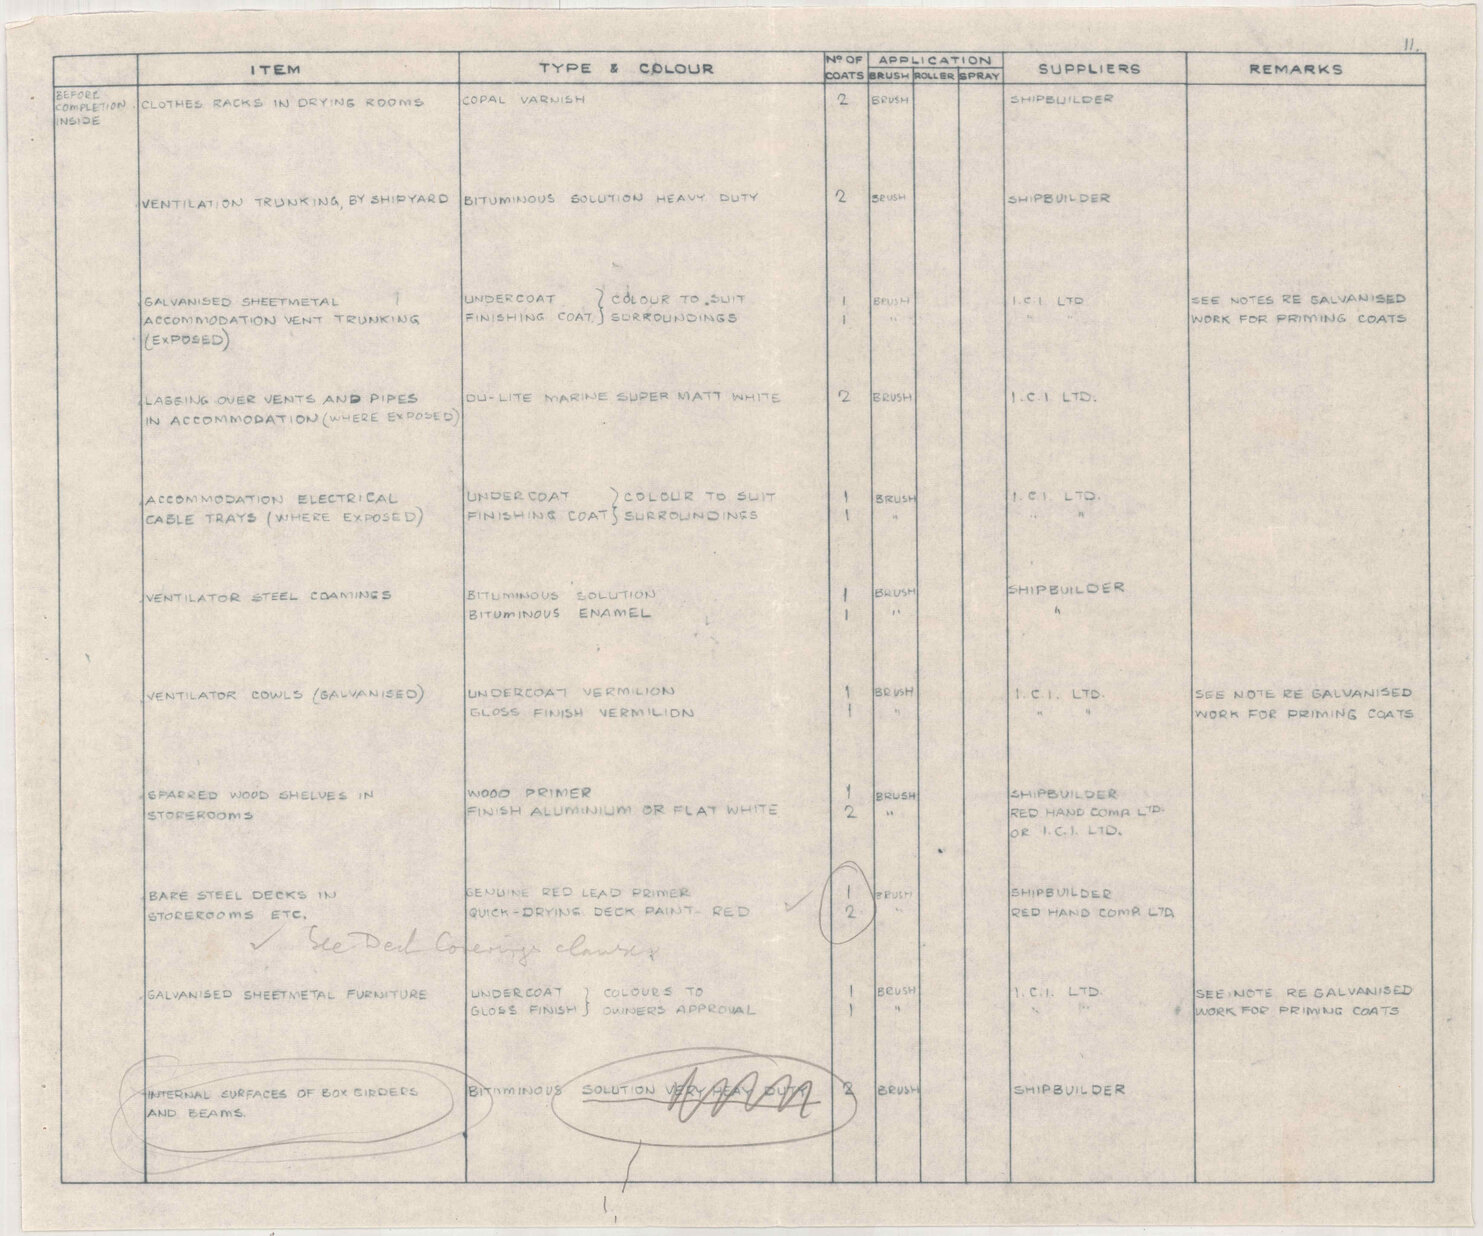 11.
ITEM TYPE & COLOUR Nº OF COATS APPLICATION BRUSH ROLLER SPRAY SUPPLIERS REMARKS
BEFORE
COMPLETION
INSIDE
CLOTHES RACKS IN DRYING ROOMS COPAL VARNISH 2 BRUSH SHIPBUILDER
VENTILATION TRUNKING, BY SHIPYARD BITUMINOUS SOLUTION HEAVY DUTY 2 BRUSH SHIPBUILDER
GALVANISED SHEETMETAL UNDERCOAT } COLOUR TO SUIT 1 BRUSH I.C.I. LTD SEE NOTES RE GALVANISED
ACCOMMODATION VENT TRUNKING FINISHING COAT. } SURROUNDINGS 1 " " " WORK FOR PRIMING COATS
(EXPOSED)
LAGGING OVER VENTS AND PIPES DU-LITE MARINE SUPER MATT WHITE 2 BRUSH I.C.I. LTD.
IN ACCOMMODATION (WHERE EXPOSED)
ACCOMMODATION ELECTRICAL UNDERCOAT } COLOUR TO SUIT 1 BRUSH I.C.I. LTD.
CABLE TRAYS (WHERE EXPOSED) FINISHING COAT } SURROUNDINGS 1 " " "
VENTILATOR STEEL COAMINGS BITUMINOUS SOLUTION 1 BRUSH SHIPBUILDER
BITUMINOUS ENAMEL 1 " "
VENTILATOR COWLS (GALVANISED) UNDERCOAT VERMILION 1 BRUSH I.C.I. LTD. SEE NOTE RE GALVANISED
GLOSS FINISH VERMILION 1 " " " WORK FOR PRIMING COATS
SPARRED WOOD SHELVES IN WOOD PRIMER 1 BRUSH SHIPBUILDER
STOREROOMS FINISH ALUMINIUM OR FLAT WHITE 2 " RED HAND COMP. LTD.
OR I.C.I. LTD.
BARE STEEL DECKS IN GENUINE RED LEAD PRIMER 1 BRUSH SHIPBUILDER
STOREROOMS ETC. QUICK-DRYING DECK PAINT- RED ✓ 2 " RED HAND COMP. LTD.
✓ See Deck Coverings clause
GALVANISED SHEETMETAL FURNITURE UNDERCOAT } COLOURS TO 1 BRUSH I.C.I. LTD. SEE NOTE RE GALVANISED
GLOSS FINISH } OWNERS APPROVAL 1 " " " WORK FOR PRIMING COATS
INTERNAL SURFACES OF BOX GIRDERS BITUMINOUS SOLUTION VERY HEAVY DUTY 2 BRUSH SHIPBUILDER
AND BEAMS.